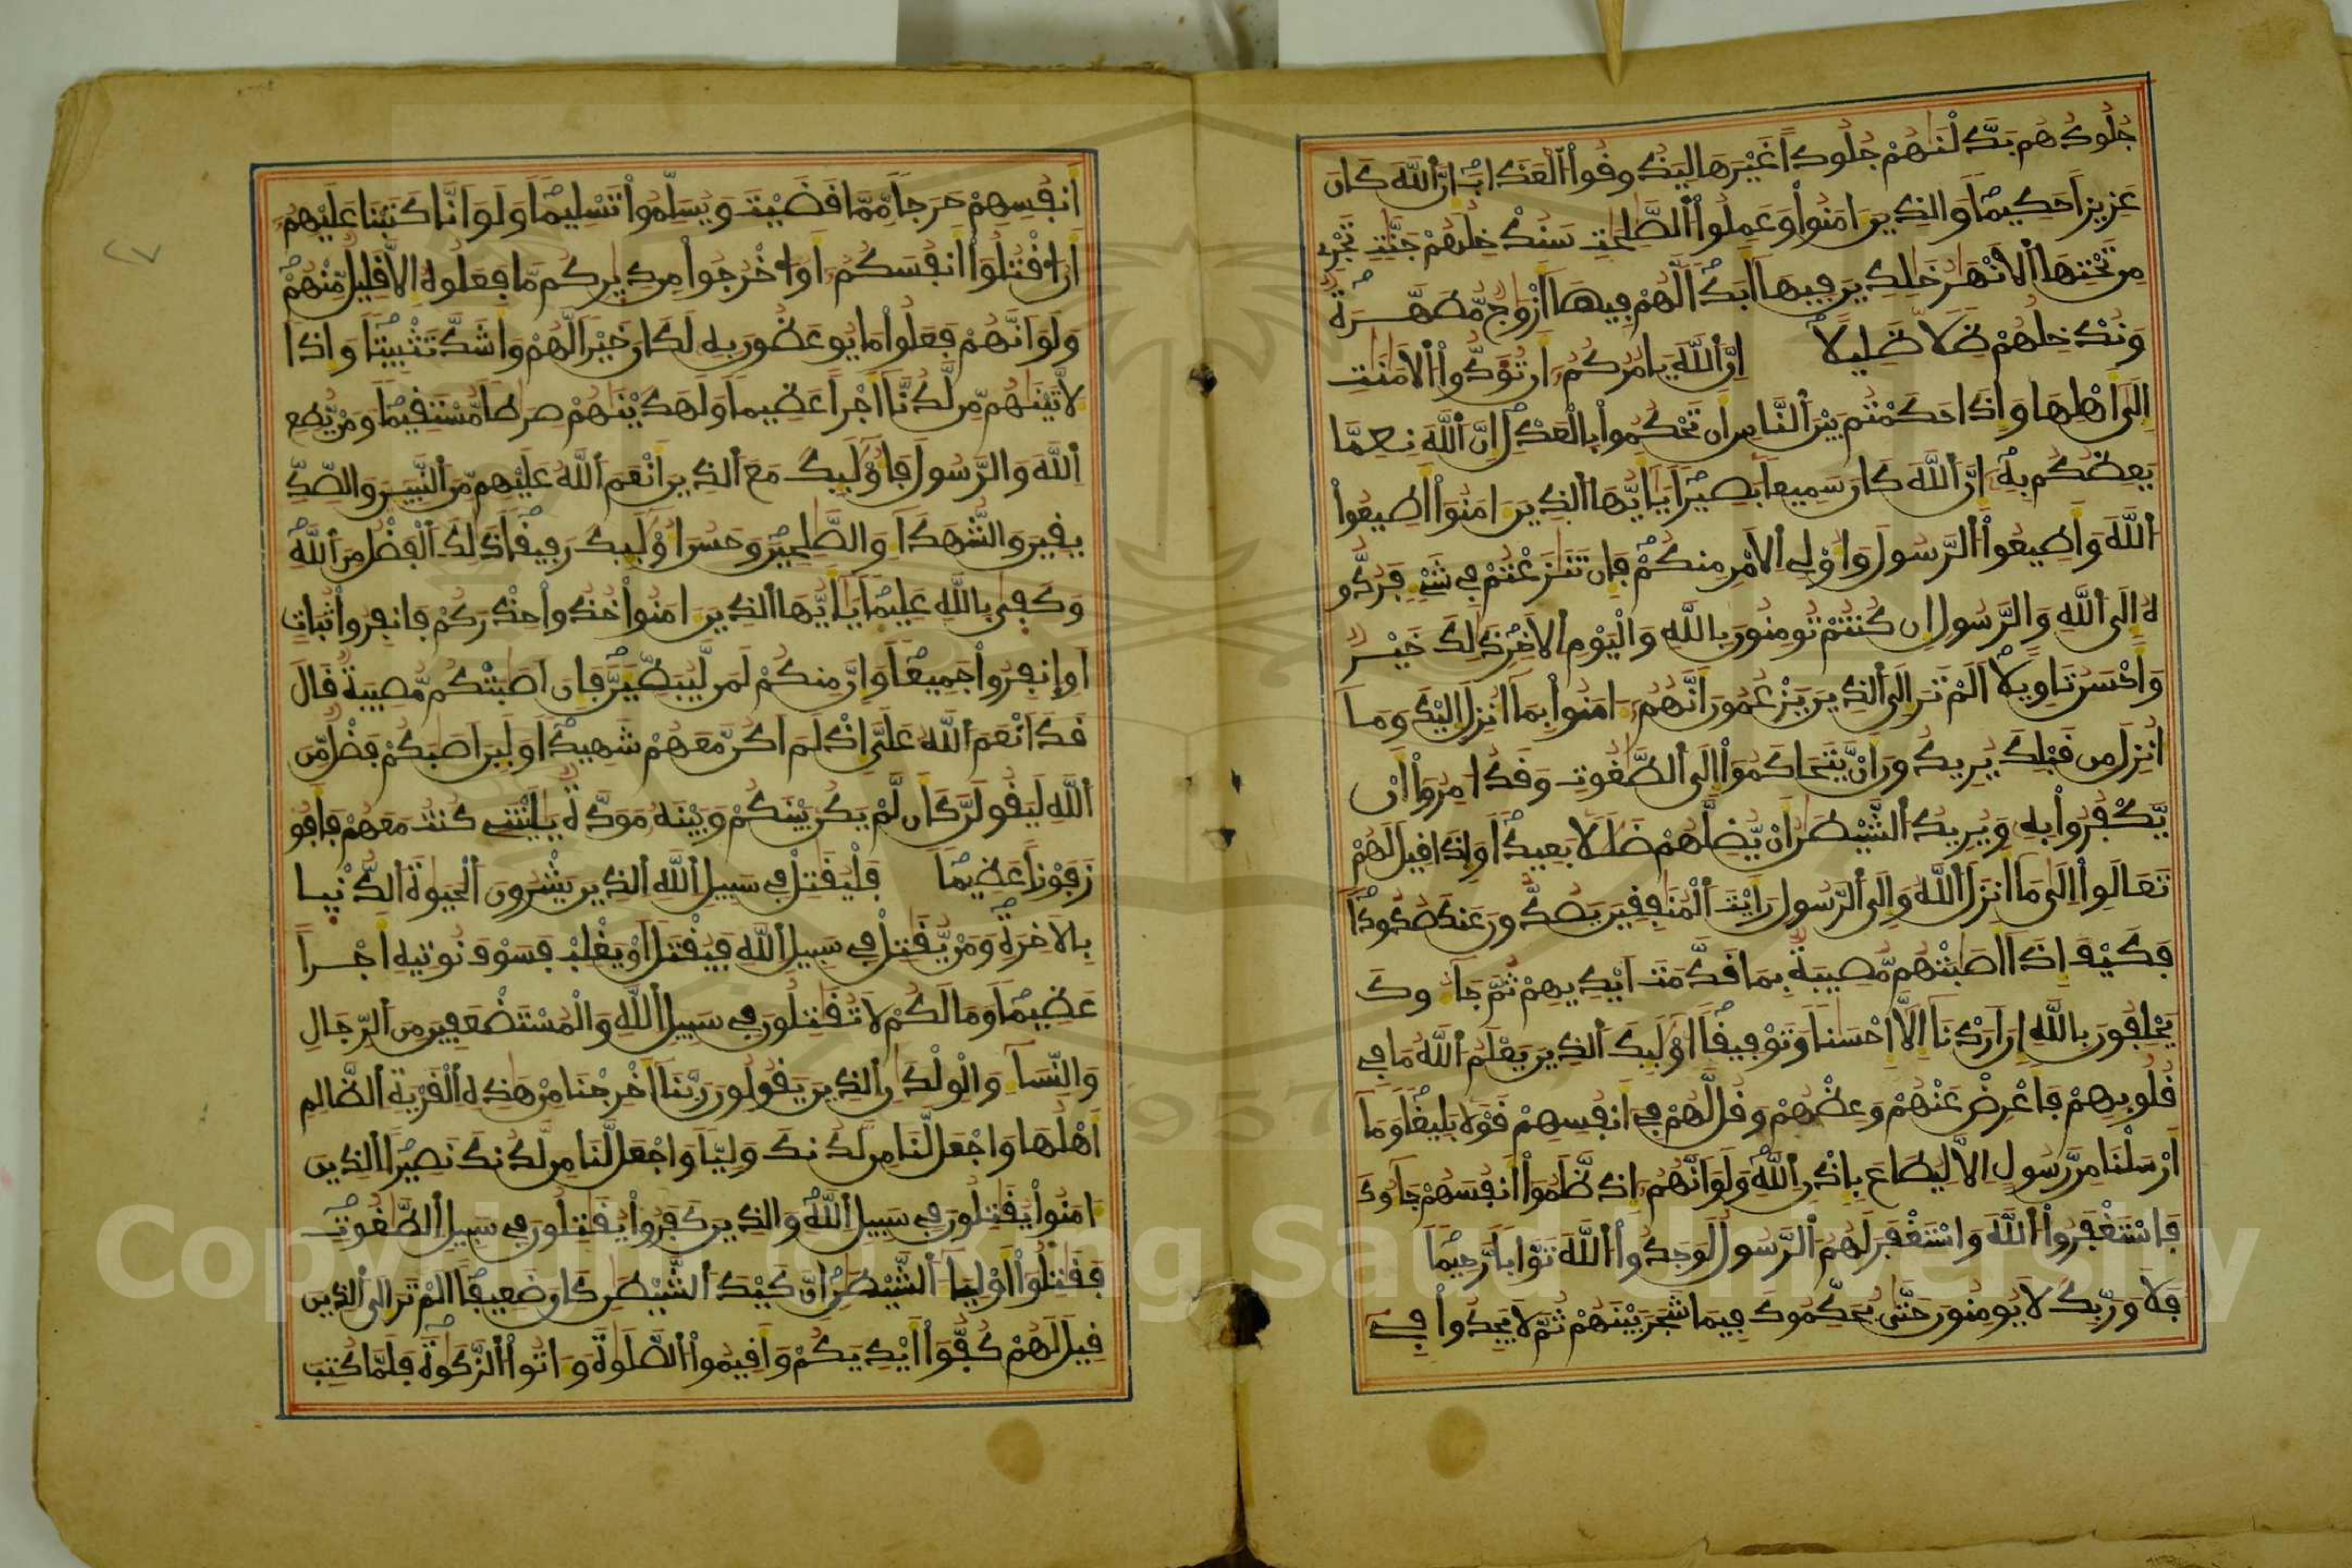 جُلُودُهُم بَدَّلْنَٰهُمْ جُلُوداً غَيْرَهَا لِيَذُوقُواْ اُ۬لْعَذَابَۖ إِنَّ اَ۬للَّهَ كَانَ
عَزِيزاً حَكِيماًۖ وَالذِينَ ءَامَنُواْ وَعَمِلُواْ اُ۬لصَّٰلِحَٰتِ سَنُدْخِلُهُمْ جَنَّٰتٖ تَجْرِے
مِن تَحْتِهَا اَ۬لَانْهَٰرُ خَٰلِدِينَ فِيهَا أَبَداٗۖ لَّهُمْ فِيهَا أَزْوَٰجٞ مُّطَهَّرَةٞ
وَنُدْخِلُهُمْ ظِلّاٗ ظَلِيلاًۖ إِنَّ اَ۬للَّهَ يَامُرُكُمُۥٓ أَن تُوَدُّواْ اُ۬لَامَٰنَٰتِ
إِلَىٰٓ أَهْلِهَا وَإِذَا حَكَمْتُم بَيْنَ اَ۬لنَّاسِ أَن تَحْكُمُواْ بِالْعَدْلِۖ إِنَّ اَ۬للَّهَ نِعِمَّا
يَعِظُكُم بِهِۦٓۖ إِنَّ اَ۬للَّهَ كَانَ سَمِيعاَۢ بَصِيراٗۖ يَٰٓأَيُّهَا اَ۬لذِينَ ءَامَنُوٓاْ أَطِيعُواْ
اُ۬للَّهَ وَأَطِيعُواْ اُ۬لرَّسُولَ وَأُوْلِے اِ۬لَامْرِ مِنكُمْۖ فَإِن تَنَٰزَعْتُمْ فِے شَےْءٖ فَرُدُّو
هُ إِلَى اَ۬للَّهِ وَالرَّسُولِ إِن كُنتُمْ تُومِنُونَ بِاللَّهِ وَالْيَوْمِ اِ۬لَاخِرِۖ ذَٰلِكَ خَيْرٞ
وَأَحْسَنُ تَاوِيلاًۖ اَلَمْ تَرَ إِلَى اَ۬لذِينَ يَزْعُمُونَ أَنَّهُمُۥٓ ءَامَنُواْ بِمَآ أُنزِلَ إِلَيْكَ وَمَآ
أُنزِلَ مِن قَبْلِكَ يُرِيدُونَ أَنْ يَّتَحَاكَمُوٓاْ إِلَى اَ۬لطَّٰغُوتِ وَقَدُ ا۟مِرُوٓاْ أَنْ
يَّكْفُرُواْ بِهِۦ وَيُرِيدُ اُ۬لشَّيْطَٰنُ أَنْ يُّضِلَّهُمْ ضَلَٰلاَۢ بَعِيداٗۖ وَإِذَا قِيلَ لَهُمْ
تَعَالَوِاْ اِلَىٰ مَآ أَنزَلَ اَ۬للَّهُ وَإِلَى اَ۬لرَّسُولِ رَأَيْتَ اَ۬لْمُنَٰفِقِينَ يَصُدُّونَ عَنكَ صُدُوداٗۖ
فَكَيْفَ إِذَآ أَصَٰبَتْهُم مُّصِيبَةُۢ بِمَا قَدَّمَتَ اَيْدِيهِمْ ثُمَّ جَآءُوكَ
يَحْلِفُونَ بِاللَّهِ إِنَ اَرَدْنَآ إِلَّآ إِحْسَٰناٗ وَتَوْفِيقاًۖ اُوْلَٰٓئِكَ اَ۬لذِينَ يَعْلَمُ اُ۬للَّهُ مَا فِے
قُلُوبِهِمْ فَأَعْرِضْ عَنْهُمْ وَعِظْهُمْ وَقُل لَّهُمْ فِےٓ أَنفُسِهِمْ قَوْلاَۢ بَلِيغاٗۖ وَمَآ
أَرْسَلْنَا مِن رَّسُولٍ اِلَّا لِيُطَاعَ بِإِذْنِ اِ۬للَّهِۖ وَلَوَ اَنَّهُمُۥٓ إِذ ظَّلَمُوٓاْ أَنفُسَهُمْ جَآءُوكَ
فَاسْتَغْفَرُواْ اُ۬للَّهَ وَاسْتَغْفَرَ لَهُمُ اُ۬لرَّسُولُ لَوَجَدُواْ اُ۬للَّهَ تَوَّاباٗ رَّحِيماٗۖ
فَلَا وَرَبِّكَ لَا يُومِنُونَ حَتَّىٰ يُحَكِّمُوكَ فِيمَا شَجَرَ بَيْنَهُمْ ثُمَّ لَا يَجِدُواْ فِےٓ
أَنفُسِهِمْ حَرَجاٗ مِّمَّا قَضَيْتَ وَيُسَلِّمُواْ تَسْلِيماٗۖ وَلَوَ اَنَّا كَتَبْنَا عَلَيْهِمُۥٓ
أَنُ ا۟قْتُلُوٓاْ أَنفُسَكُمُۥٓ أَوُ ا۟خْرُجُواْ مِن دِيٰ۪رِكُم مَّا فَعَلُوهُ إِلَّا قَلِيلٞ مِّنْهُمْۖ
وَلَوَ اَنَّهُمْ فَعَلُواْ مَا يُوعَظُونَ بِهِۦ لَكَانَ خَيْراٗ لَّهُمْ وَأَشَدَّ تَثْبِيتاٗۖ وَإِذاٗ
لَّأٓتَيْنَٰهُم مِّن لَّدُنَّآ أَجْراً عَظِيماٗ وَلَهَدَيْنَٰهُمْ صِرَٰطاٗ مُّسْتَقِيماٗۖ وَمَنْ يُّطِعِ
اِ۬للَّهَ وَالرَّسُولَ فَأُوْلَٰٓئِكَ مَعَ اَ۬لذِينَ أَنْعَمَ اَ۬للَّهُ عَلَيْهِم مِّنَ اَ۬لنَّبِيٓـِٕينَ وَالصِّدِّ
يقِينَ وَالشُّهَدَآءِ وَالصَّٰلِحِينَۖ وَحَسُنَ أُوْلَٰٓئِكَ رَفِيقاٗۖ ذَٰلِكَ اَ۬لْفَضْلُ مِنَ اَ۬للَّهِۖ
وَكَفَىٰ بِاللَّهِ عَلِيماٗۖ يَٰٓأَيُّهَا اَ۬لذِينَ ءَامَنُواْ خُذُواْ حِذْرَكُمْ فَانفِرُواْ ثُبَاتٍ
اَوِ اِ۪نفِرُواْ جَمِيعاٗۖ وَإِنَّ مِنكُمْ لَمَن لَّيُبَطِّئَنَّۖ فَإِنَ اَصَٰبَتْكُم مُّصِيبَةٞ قَالَ
قَدَ اَنْعَمَ اَ۬للَّهُ عَلَيَّ إِذْ لَمَ اَكُن مَّعَهُمْ شَهِيداٗۖ وَلَئِنَ اَصَٰبَكُمْ فَضْلٞ مِّنَ
اَ۬للَّهِ لَيَقُولَنَّ كَأَن لَّمْ يَكُنۢ بَيْنَكُمْ وَبَيْنَهُۥ مَوَدَّةٞ يَٰلَيْتَنِے كُنتُ مَعَهُمْ فَأَفُو
زَ فَوْزاً عَظِيماٗۖ فَلْيُقَٰتِلْ فِے سَبِيلِ اِ۬للَّهِ اِ۬لذِينَ يَشْرُونَ اَ۬لْحَيَوٰةَ اَ۬لدُّنْيٰا
بِالَاخِرَةِۖ وَمَنْ يُّقَٰتِلْ فِے سَبِيلِ اِ۬للَّهِ فَيُقْتَلَ اَوْ يَغْلِبْ فَسَوْفَ نُوتِيهِ أَجْراً
عَظِيماٗۖ وَمَا لَكُمْ لَا تُقَٰتِلُونَ فِے سَبِيلِ اِ۬للَّهِ وَالْمُسْتَضْعَفِينَ مِنَ اَ۬لرِّجَالِ
وَالنِّسَآءِ وَالْوِلْدَٰنِ اِ۬لذِينَ يَقُولُونَ رَبَّنَآ أَخْرِجْنَا مِنْ هَٰذِهِ اِ۬لْقَرْيَةِ اِ۬لظَّالِمِ
أَهْلُهَا وَاجْعَل لَّنَا مِن لَّدُنكَ وَلِيّاٗ وَاجْعَل لَّنَا مِن لَّدُنكَ نَصِيراًۖ اِ۬لذِينَ
ءَامَنُواْ يُقَٰتِلُونَ فِے سَبِيلِ اِ۬للَّهِۖ وَالذِينَ كَفَرُواْ يُقَٰتِلُونَ فِے سَبِيلِ اِ۬لطَّٰغُوتِۖ
فَقَٰتِلُوٓاْ أَوْلِيَآءَ اَ۬لشَّيْطَٰنِۖ إِنَّ كَيْدَ اَ۬لشَّيْطَٰنِ كَانَ ضَعِيفاًۖ اَلَمْ تَرَ إِلَى اَ۬لذِينَ
قِيلَ لَهُمْ كُفُّوٓاْ أَيْدِيَكُمْ وَأَقِيمُواْ اُ۬لصَّلَوٰةَ وَءَاتُواْ اُ۬لزَّكَوٰةَۖ فَلَمَّا كُتِبَ
Copyright © King Saud University
1957